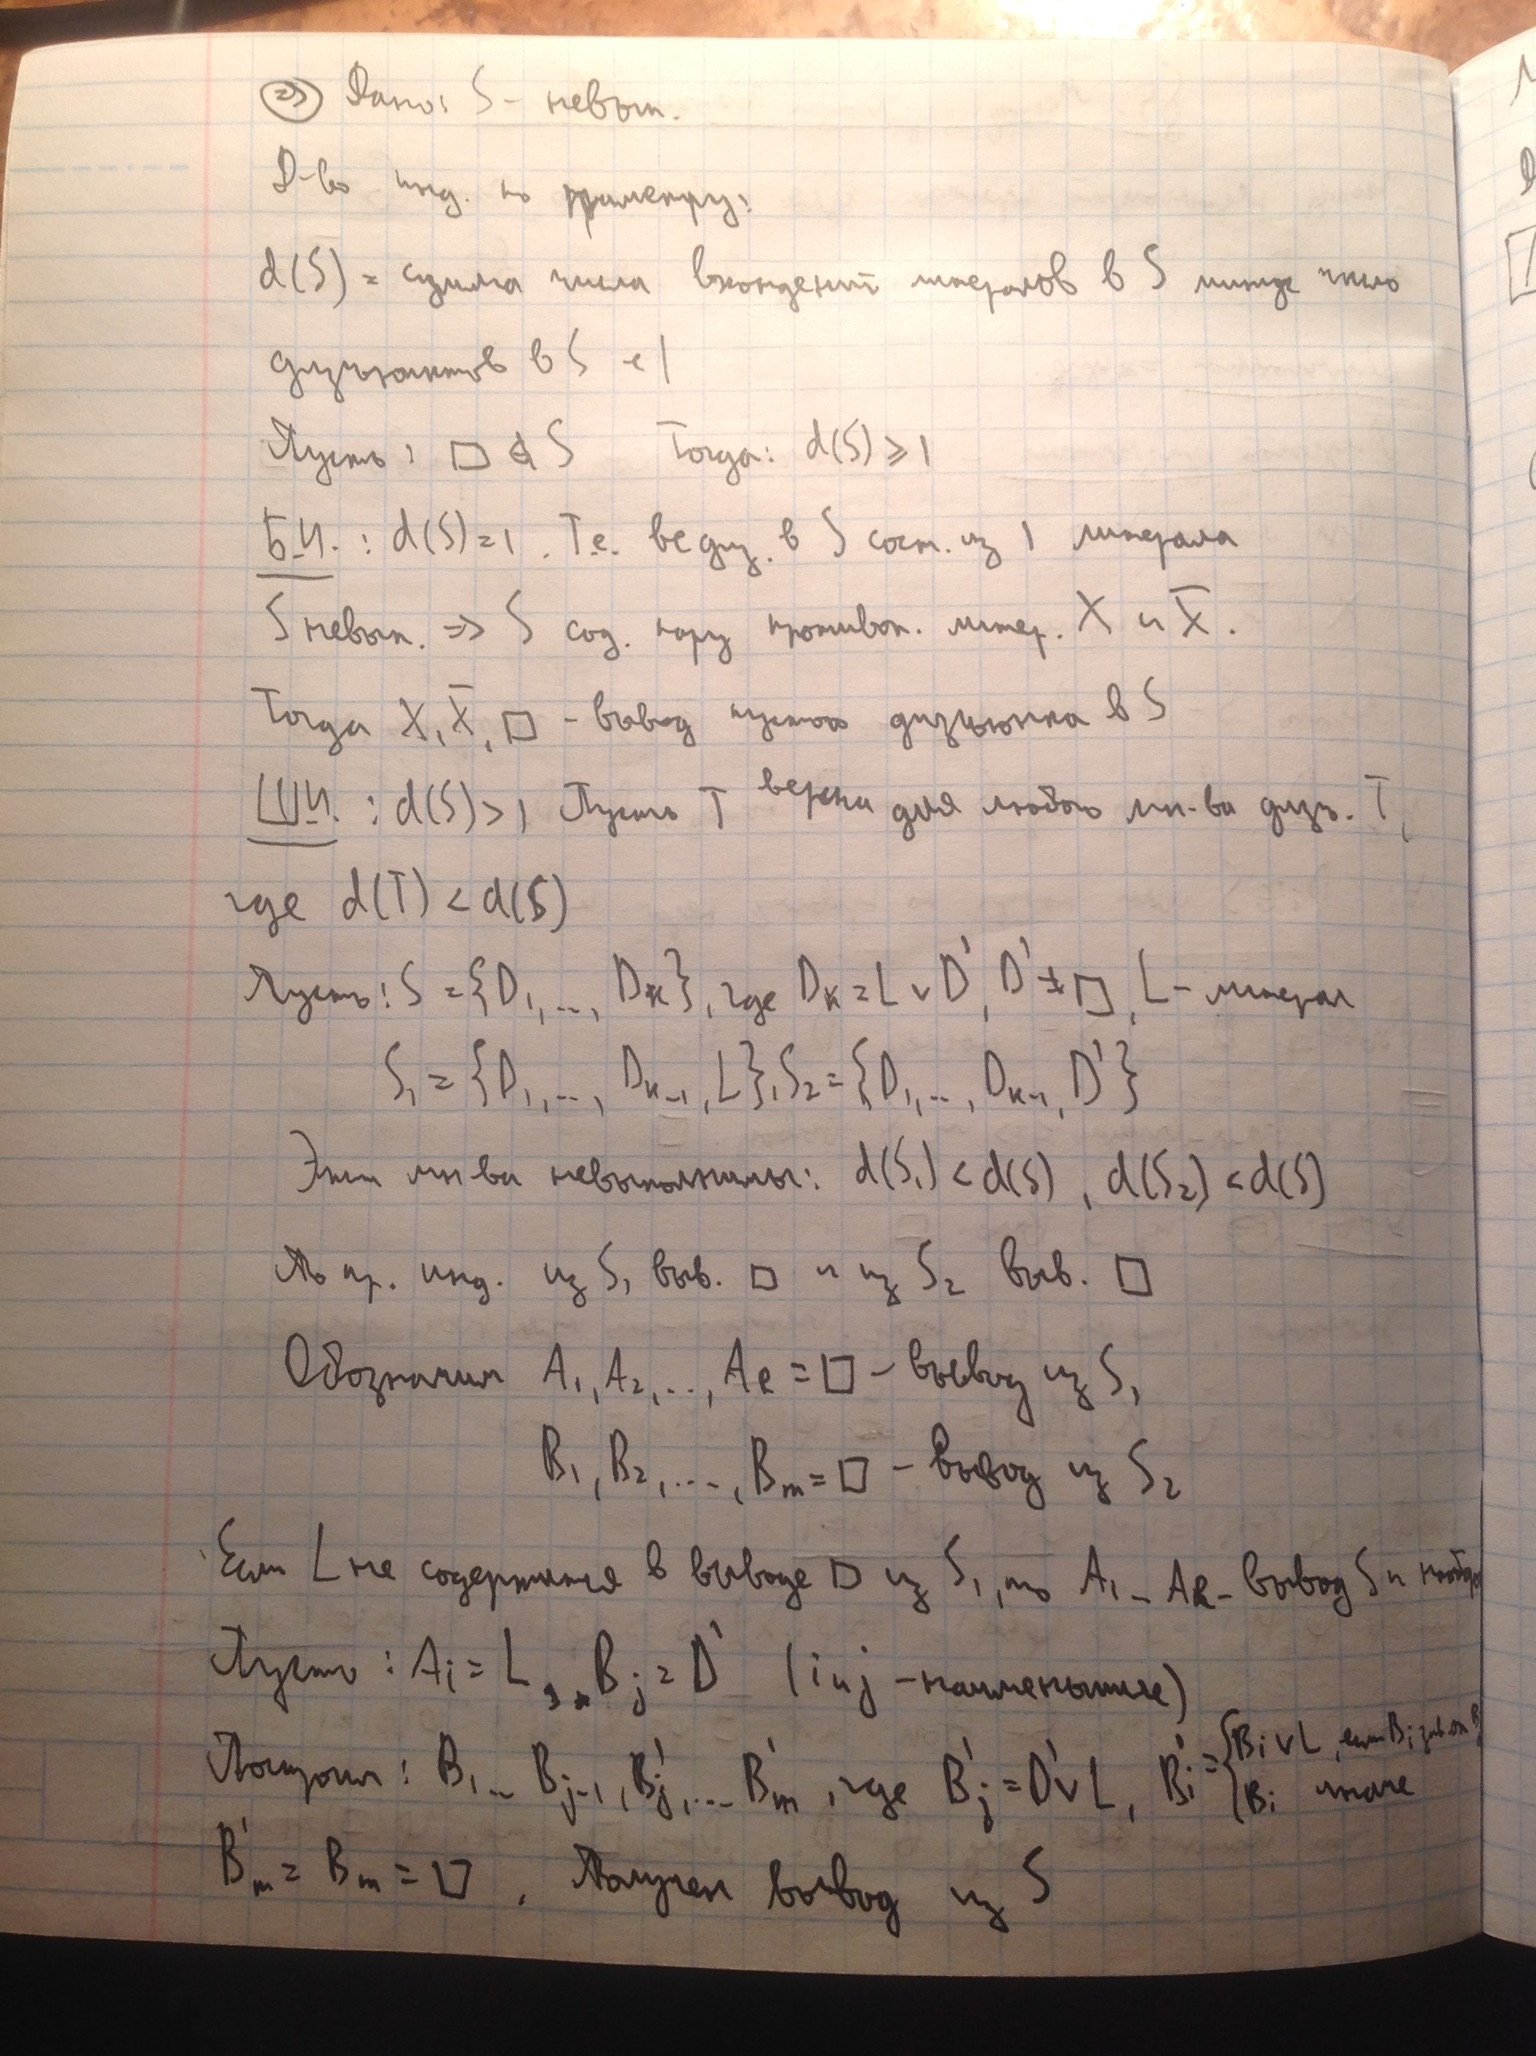 ⇒ Дано: S - невып.
Д-во инд. по параметру:
d(S) = сумма числа вхождений литералов в S минус число
дизъюнктов в S + 1
Пусть: □ ∉ S Тогда: d(S) ≥ 1
Б.И.: d(S)=1. Т.е. все диз. в S сост. из 1 литерала
S невып. ⇒ S сод. пару противоп. литер. X и X̄.
Тогда X, X̄, □ - вывод пустого дизъюнкта в S
Ш.И.: d(S)>1 Пусть Т верна для любого мн-ва диз. T,
где d(T) < d(S)
Пусть: S = {D₁, ..., Dₖ}, где Dₖ = L ∨ D', D' ≠ □, L - литерал
S₁ = {D₁, ..., Dₖ₋₁, L}, S₂ = {D₁, .., Dₖ₋₁, D'}
Эти мн-ва невыполнимы: d(S₁) < d(S), d(S₂) < d(S)
По пр. инд. из S₁ выв. □ и из S₂ выв. □
Обозначим A₁, A₂, ..., Aₑ = □ - вывод из S₁
B₁, B₂, ..., Bₘ = □ - вывод из S₂
Если L не содержится в выводе □ из S₁, то A₁ - Aₑ - вывод S и
Пусть: Aᵢ = L, Bⱼ = D' (i и j - наименьшие)
Построим: B₁ .. Bⱼ₋₁, B'ⱼ, ... B'ₘ, где B'ⱼ = D' ∨ L, B'ᵢ = { Bᵢ ∨ L, если Bᵢ
{ Bᵢ иначе
B'ₘ = Bₘ = □. Получен вывод из S